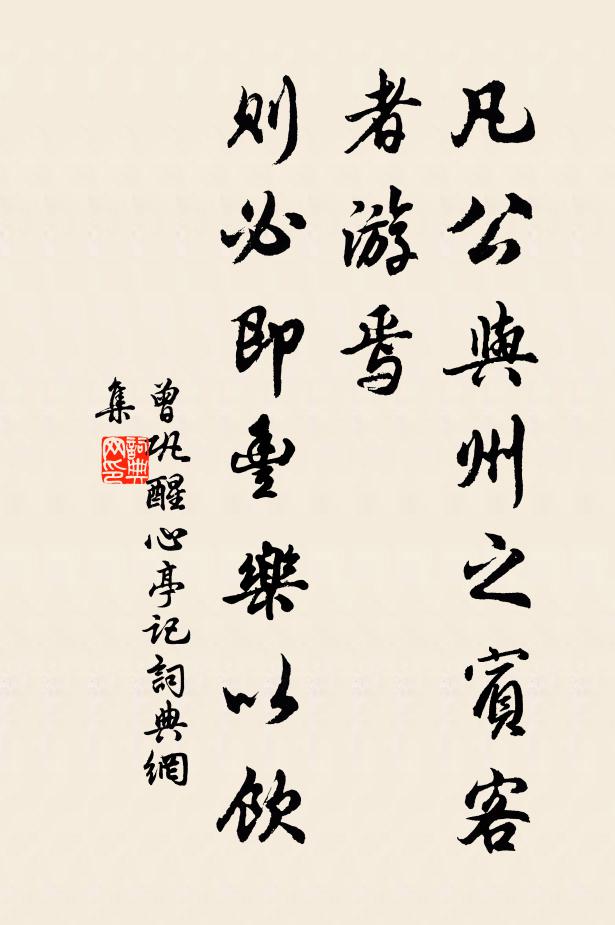 凡公與州之賓客
者游焉
則必即豐樂以飲
曾巩醒心亭記詞典網
集
詞典網印